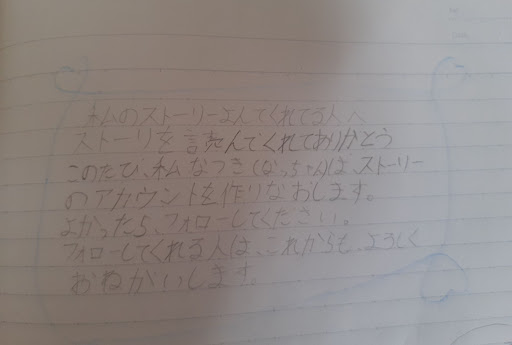 私のストーリーよんでくれてる人へ
ストーリを読んでくれてありがとう
このたび、私なつき(なっちゃん)は、ストーリー
のアカウントを作りなおします。
よかったら、フォローしてください。
フォローしてくれる人は、これからも、よろしく
おねがいします。